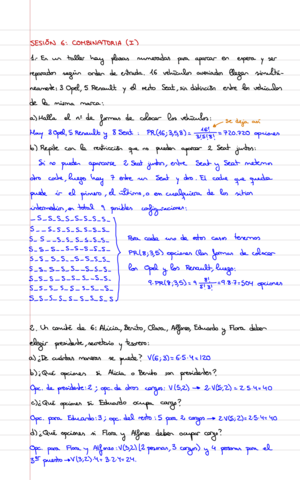 SESIÓN 6: COMBINATORIA (I)
1. En un taller hay plazas numeradas para aparcar en espera y ser
reparados según orden de entrada. 16 vehículos averiados llegan simultá-
neamente: 3 Opel, 5 Renault y el resto Seat, sin distinción entre los vehículos
de la misma marca:
a) Halla el nº de formas de colocar los vehículos: Se deja así
Hay 3 Opel, 5 Renault y 8 Seat: PR(16;3,5,8) = 16!/3!5!8! = 720.720 opciones
b) Repite con la restricción que no pueden aparcar 2 Seat juntos:
Si no pueden aparcarse 2 Seat juntos, entre Seat y Seat metemos
otro coche, luego hay 7 entre un Seat y otro. El coche que queda
puede ir el primero, el último, o en cualquiera de los sitios
intermedios, en total 9 posibles configuraciones:
_S_S_S_S_S_S_S_S
S_ _S_S_S_S_S_S_S
S_S_ _S_S_S_S_S_S
S_S_S_ _S_S_S_S_S
S_S_S_S_ _S_S_S_S
S_S_S_S_S_ _S_S_S
S_S_S_S_S_S_ _S_S
S_S_S_S_S_S_S_ _S
S_S_S_S_S_S_S_S_
Para cada uno de estos casos tenemos
PR(8;3,5) opciones (las formas de colocar
los Opel y los Renault, luego:
9·PR(8;3,5) = 9·8!/5!3! = 9·8·7 = 504 opciones
2. Un comité de 6: Alicia, Benito, Clara, Alfonso, Eduardo y Flora deben
elegir presidente, secretario y tesorero:
a) ¿De cuántas maneras se puede? V(6,3) = 6·5·4 = 120
b) ¿Qué opciones si Alicia o Benito son presidentes?
Opc. de presidente: 2; opc. de otros cargos: V(5,2) → 2·V(5,2) = 2·5·4 = 40
c) ¿Qué opciones si Eduardo ocupa cargo?
Opc. para Eduardo: 3; opc. del resto: 5 para 2 cargos → 2V(5,2) = 2·5·4 = 40
d) ¿Qué opciones si Flora y Alfonso deben ocupar cargo?
Opc. para Flora y Alfonso: V(3,2) (2 personas, 3 cargos) y 4 personas para el
3er puesto → V(3,2)·4 = 3·2·4 = 24.